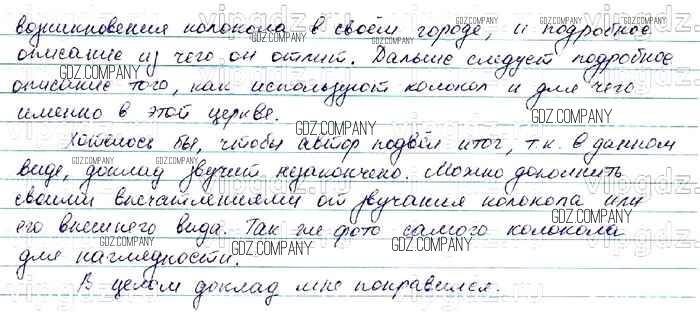 возникновения колокола в своём городе, и подробное
описание из чего он отлит. Дальше следует подробное
описание того, как используют колокол и для чего
именно в этой церкве.
Хотелось бы, чтобы автор подвёл итог, т.к. в данном
виде, доклад звучит незаконченно. Можно дополнить
своими впечатлениями от звучания колокола или
его внешнего вида. Так же фото самого колокола
для наглядности.
В целом доклад мне понравился.
GDZ.COMPANY
vipgdz.ru